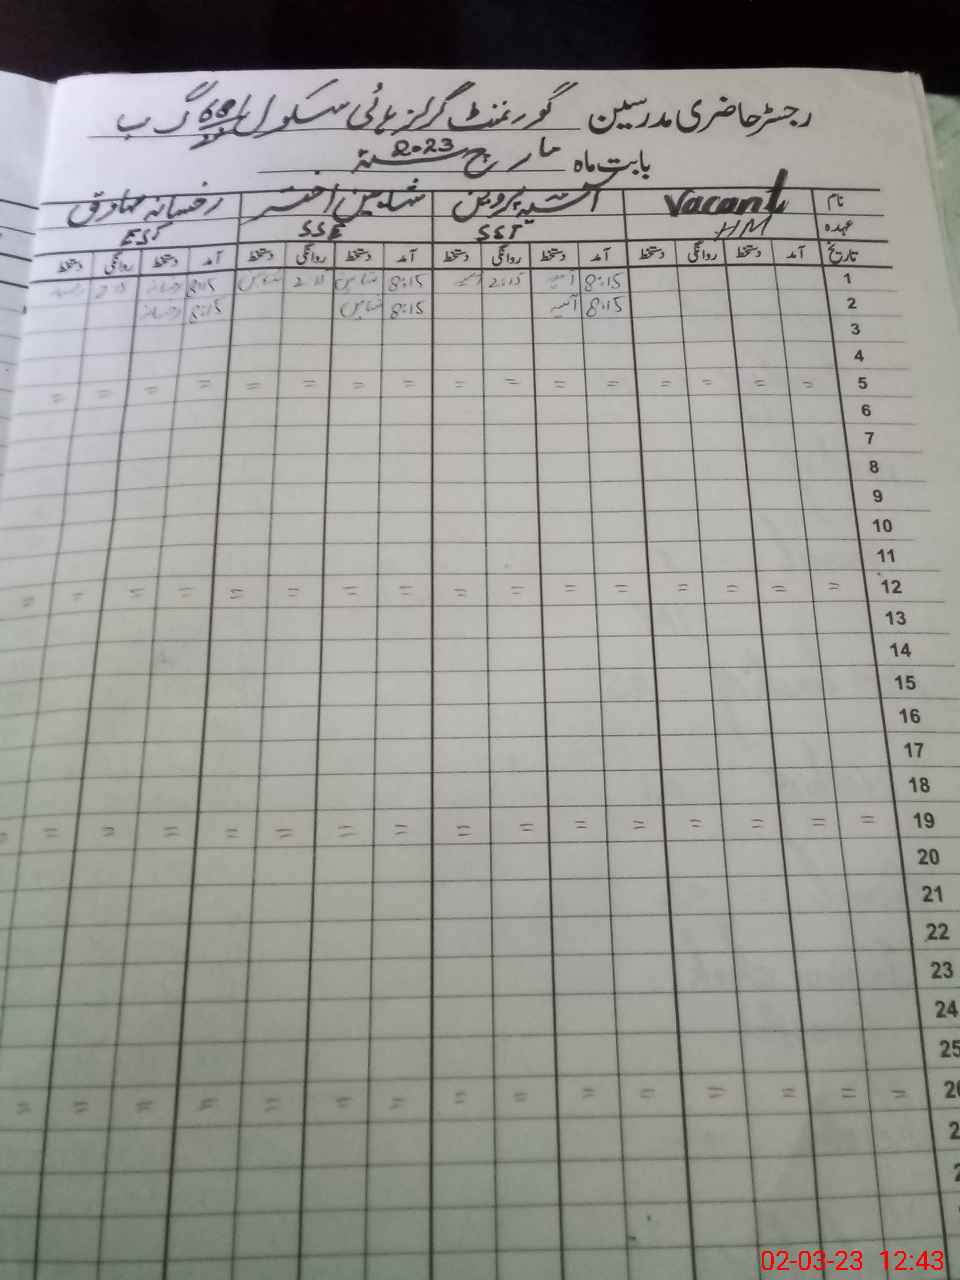 رجسٹر حاضری مدرسین گورنمنٹ گرلز ہائی سکول 68 گ ب
بابت ماہ مارچ سنہ 2023
نام Vacant آسیہ پروین شاہین اختر رخسانہ صادق
عہدہ HM SST SSE EST
تاریخ آمد دستخط روانگی دستخط آمد دستخط روانگی دستخط آمد دستخط روانگی دستخط آمد دستخط روانگی دستخط
1 8:15 آسیہ 2:15 آسیہ 8:15 شاہین 2:15 شاہین 8:15 رخسانہ 2:15 رخسانہ
2 8:15 آسیہ 8:15 شاہین 8:15 رخسانہ
3
4
5 = = = = = = = = = = = = = = = =
6
7
8
9
10
11
12 = = = = = = = = = = = = = = = =
13
14
15
16
17
18
19 = = = = = = = = = = = = = = = =
20
21
22
23
24
25
= = = = = = = = = = = = = = = =
02-03-23 12:43